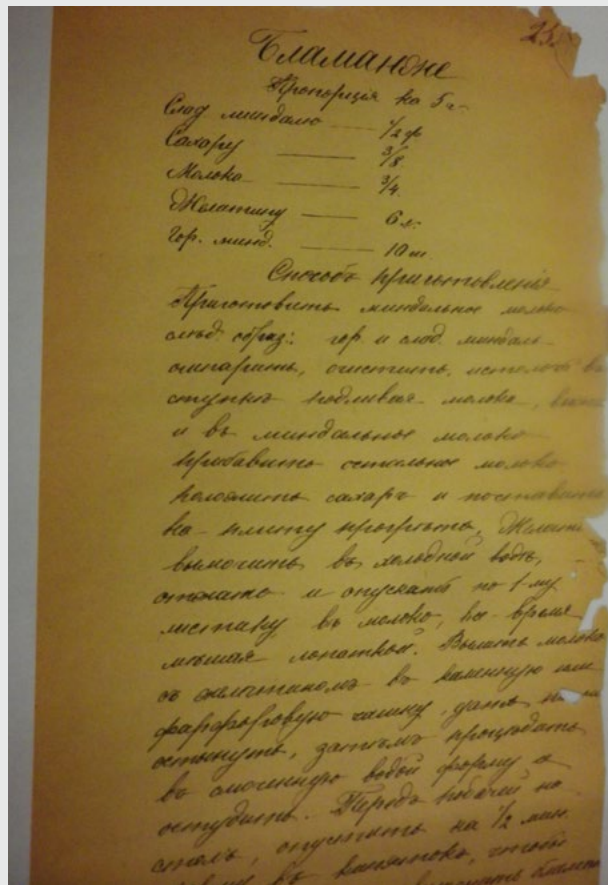 25.
Бламанже
Пропорція на 5 ч.
Слад миндалю — 1/2 ф
Сахару — 3/8
Молока — 3/4
Желатину — 6 л.
Гор. минд. — 10 ш.
Способъ приготовленія
Приготовить миндальное молоко
слѣд. образ: гор и слад. миндаль
ошпарить, очистить, истолочь въ
ступкѣ подливая молоко,
и въ миндальное молоко
прибавить остальное молоко
положить сахаръ и поставить
на плиту прогрѣть. Желат
вымочить въ холодной водѣ,
отжать и опускать по 1-му
листику въ молоко, все время
мѣшая лопаткой. Вылить молоко
съ желатиномъ въ каменную или
фарфоровую чашку, дать
остынуть, затѣмъ процѣдить
въ смоченную водой форму и
остудить. Передъ подачей на
столъ, опустить на 1/2 мин.
въ кипятокъ, чтобы